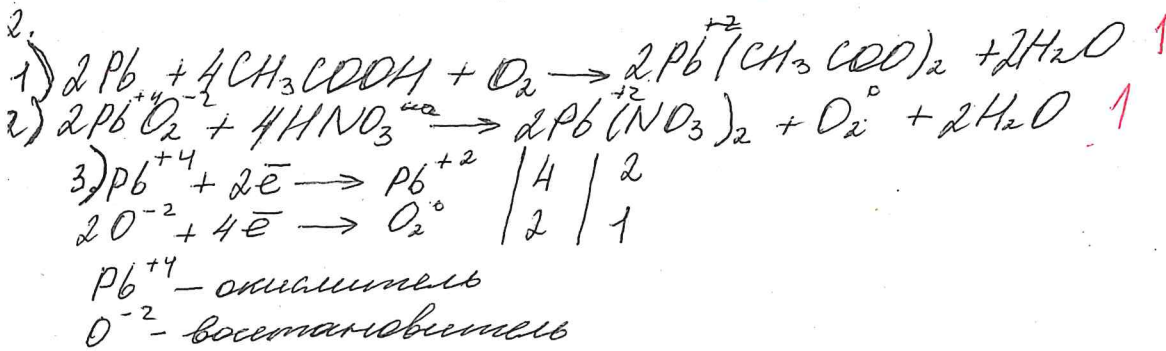 2.
1) 2Pb + 4CH₃COOH + O₂ → 2Pb⁺²(CH₃COO)₂ + 2H₂O 1
2) 2Pb⁺⁴O₂⁻² + 4HNO₃ → 2Pb⁺²(NO₃)₂ + O₂⁰ + 2H₂O 1
3.) Pb⁺⁴ + 2ē → Pb⁺² | 4 | 2
2O⁻² + 4ē → O₂⁰ | 2 | 1
Pb⁺⁴ – окислитель
O⁻² - восстановитель